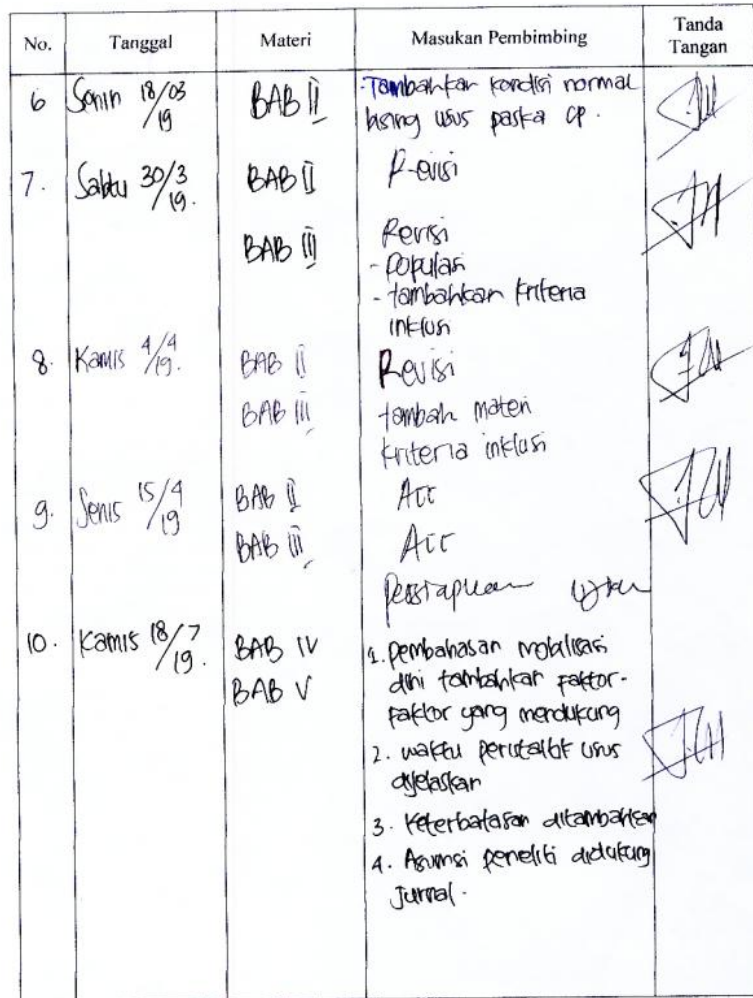 No. Tanggal Materi Masukan Pembimbing Tanda Tangan
6 Senin 18/03/19 BAB II -Tambahkan kondisi normal
bising usus paska OP.
7. Sabtu 30/3/19. BAB II Revisi
BAB III Revisi
- Populasi
- tambahkan kriteria
inklusi
8. Kamis 4/4/19. BAB II Revisi
BAB III tambah materi
kriteria inklusi
9. Senis 15/4/19 BAB II Acc
BAB III Acc
10. Kamis 18/7/19. BAB IV 1. pembahasan mobilisasi
BAB V dini tambahkan faktor-
faktor yang mendukung
2. waktu peristaltik usus
dijelaskan
3. Keterbatasan ditambahkan
4. Asumsi peneliti didukung
Jurnal.